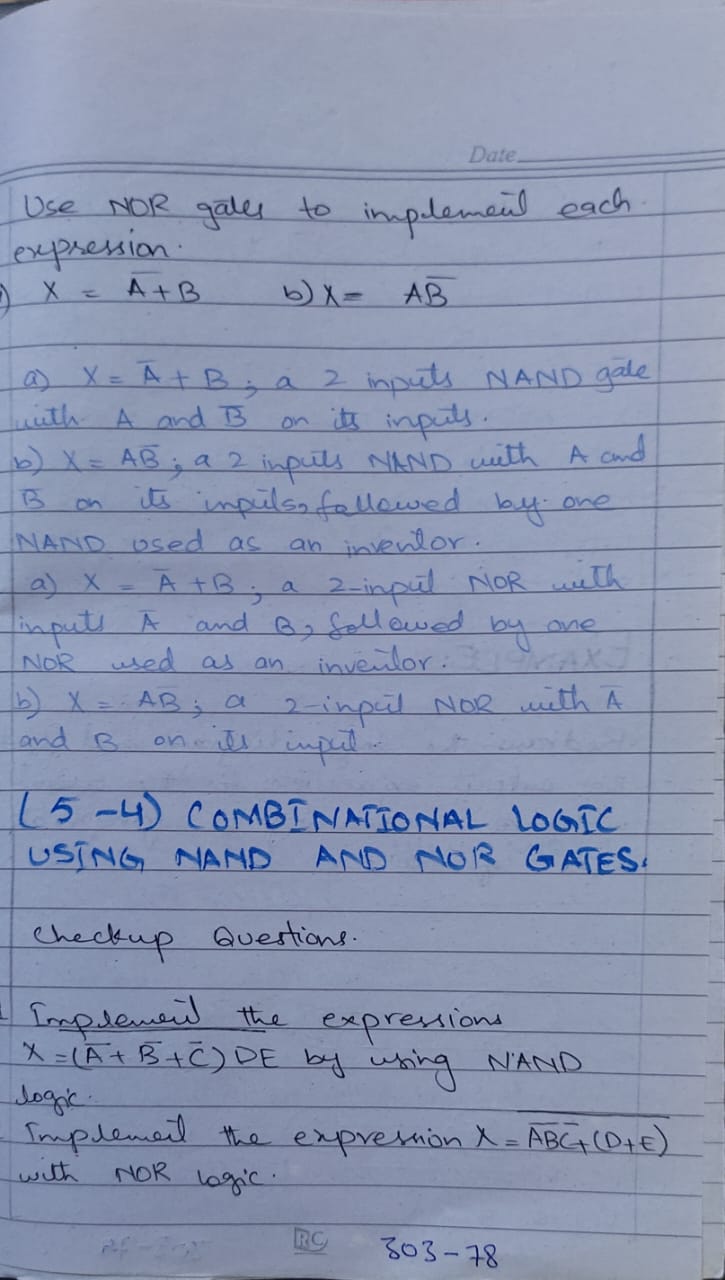 Date
Use NOR gates to implement each
expression.
) X = A̅ + B b) X = AB̅
a) X = A̅ + B ; a 2 inputs NAND gate
with A and B̅ on its inputs.
b) X = AB̅ ; a 2 inputs NAND with A and
B̅ on its inputs, followed by one
NAND used as an inventor.
a) X = A̅ + B ; a 2-input NOR with
inputs A̅ and B, followed by one
NOR used as an inventor.
b) X = AB̅ ; a 2-input NOR with A̅
and B on its input.
(5-4) COMBINATIONAL LOGIC
USING NAND AND NOR GATES.
Checkup Questions.
Implement the expressions
X = (A̅ + B̅ + C̅) DE by using NAND
logic.
Implement the expression X = A̅B̅C̅+̅(̅D̅+̅E̅)̅
with NOR logic.
RC 303-78